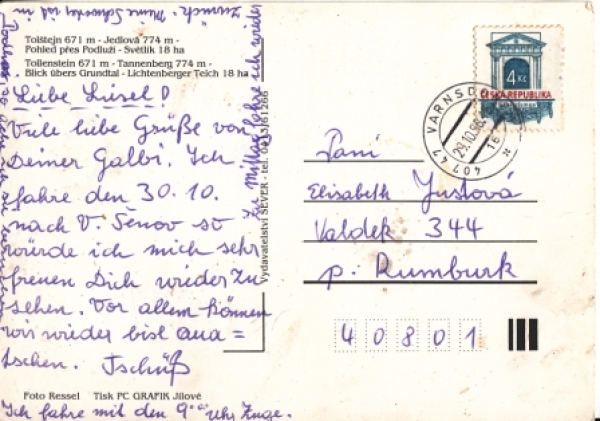 Tolštejn 671 m - Jedlová 774 m -
Pohled přes Podluží - Světlík 18 ha
Tollenstein 671 m - Tannenberg 774 m -
Blick übers Grundtal - Lichtenberger Teich 18 ha
Liebe Liesel!
Viele liebe Grüße von
Deiner Galbi. Ich
fahre den 30. 10.
nach V. Šenov so
würde ich mich sehr
freuen Dich wieder zu
sehen. Vor allem können
wir wieder bisl qua=
tschen. Tschüß
Foto Ressel Tisk PC GRAFIK Jílové
Ich fahre mit den 9°° Uhr Zuge.
Zu Mittag fahre ich wieder
zurück. Meine Schwester ist in
Vydavatelství SEVER - tel. 0413/81266
4 Kč
ČESKÁ REPUBLIKA
VARNSDO
29.10.96
16
407 47
Paní
Elisabeth Justová
Valdek 344
p. Rumburk
40801